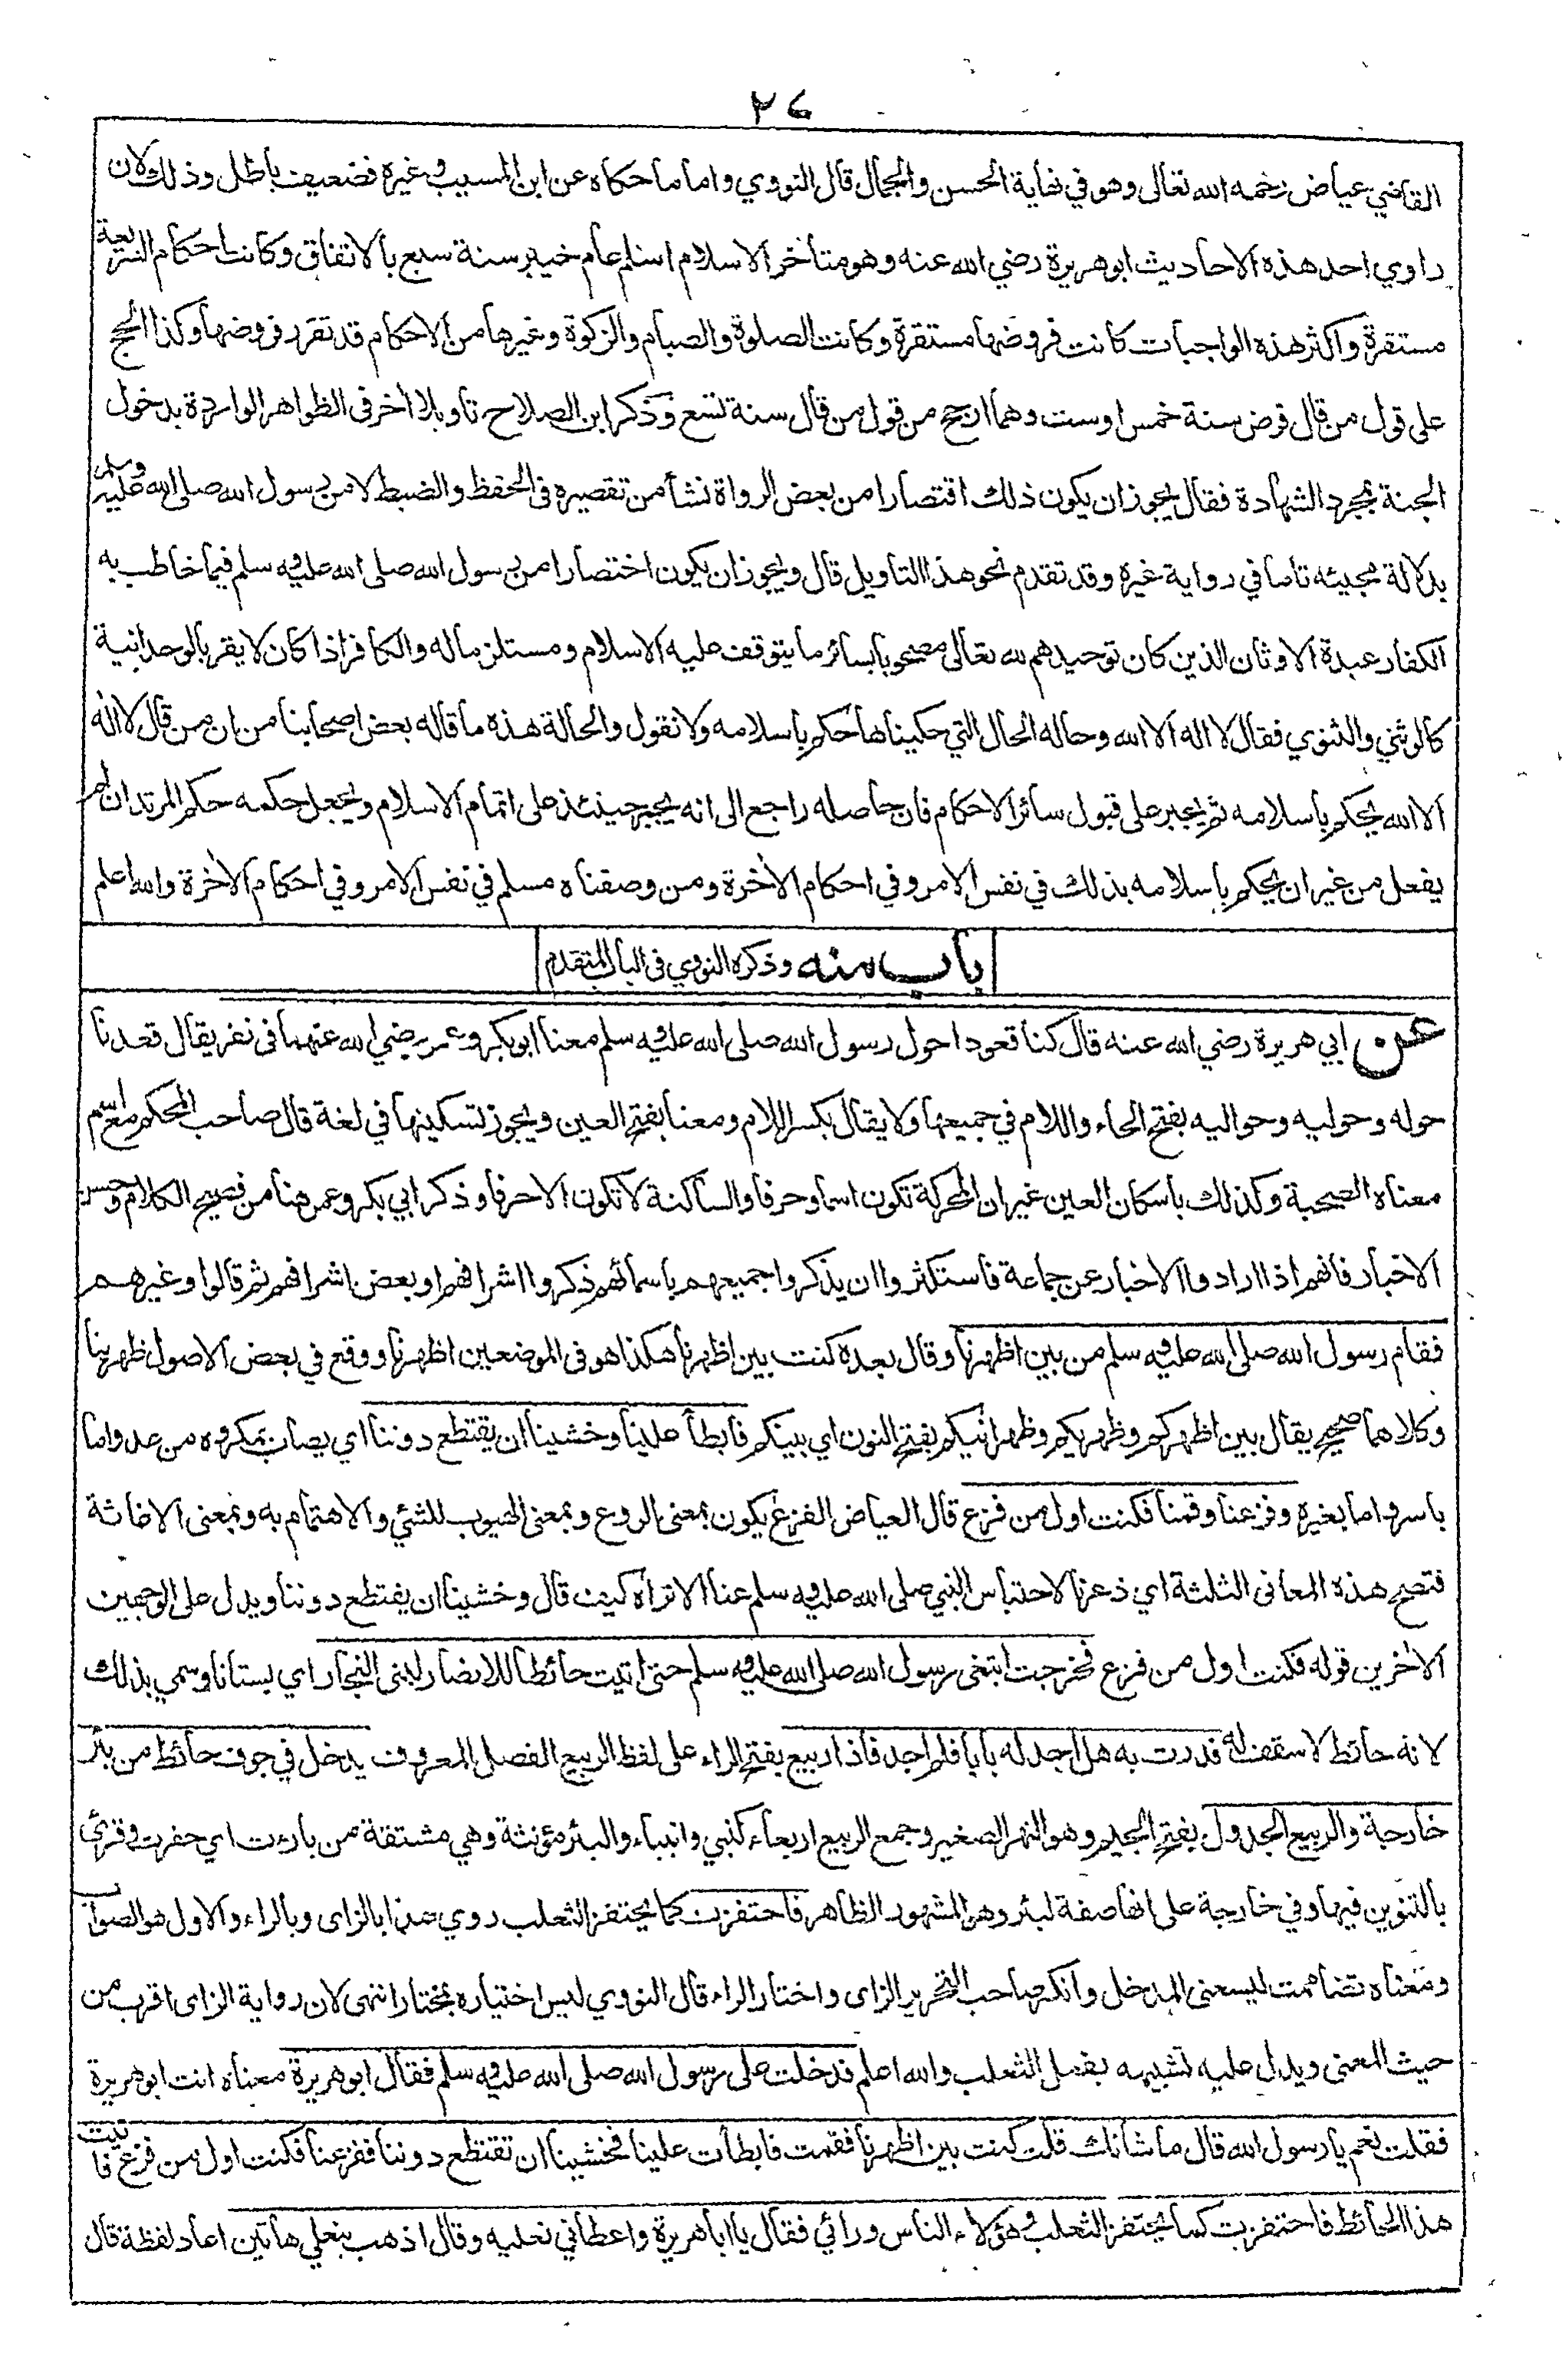 ٢٦
القاضي عياض رحمه الله تعالى وهو في نهاية الحسن والجمال قال النووي واما ما حكاه عن ابن المسيب وغيره فضعيف باطل وذلك لان
راوي احد هذه الاحاديث ابو هريرة رضي الله عنه وهو متأخر الاسلام اسلم عام خيبر سنة سبع بالاتفاق وكانت احكام الشريعة
مستقرة واكثر هذه الواجبات كانت فروضها مستقرة وكانت الصلوة والصيام والزكوة وغيرها من الاحكام قد تقرر فروضها وكذا الحج
على قول من قال فرض سنة خمس اوست وهما ارجح من قول من قال سنة تسع وذكر ابن الصلاح تاويلا اخر فى الظواهر الواردة بدخول
الجنة بمجرد الشهادة فقال يجوز ان يكون ذلك اقتصارا من بعض الرواة نشأ من تقصيره فى الحفظ والضبط لا من رسول الله صلى الله عليه وسلم
بدلالة مجيئه تاما في رواية غيره وقد تقدم نحو هذا التاويل قال ويجوز ان يكون اختصارا من رسول الله صلى الله عليه وسلم فيما خاطب به
الكفار عبدة الاوثان الذين كان توحيدهم لله تعالى مصحوبا بسائر ما يتوقف عليه الاسلام ومستلزما له والكافر اذا كان لا يقر بالوحدانية
كالوثني والثنوي فقال لا اله الا الله وحاله الحال التي حكيناها حكم باسلامه ولا نقول والحالة هذه ما قاله بعض اصحابنا من ان من قال لا اله
الا الله يحكم باسلامه ثم يجبر على قبول سائر الاحكام فان حاصله راجع الى انه يجبر حينئذ على اتمام الاسلام ويجعل حكمه حكم المرتد ان لم
يفعل من غير ان يحكم باسلامه بذلك في نفس الامر وفي احكام الاخرة ومن وصفناه مسلم في نفس الامر وفي احكام الاخرة والله اعلم
باب منه وذكره النووي فى الباب المتقدم
عن ابي هريرة رضي الله عنه قال كنا قعودا حول رسول الله صلى الله عليه وسلم معنا ابو بكر وعمر رضي الله عنهما فى نفر يقال قعدنا
حوله وحوليه وحواليه بفتح الحاء واللام في جميعها ولا يقال بكسر اللام ومعنا بفتح العين ويجوز تسكينها في لغة قال صاحب المحكم مع اسم
معناه الصحبة وكذلك باسكان العين غير ان المحركة تكون اسما وحرفا والساكنة لا تكون الا حرفا وذكر ابي بكر وعمر هنا من فصيح الكلام وحسن
الاخبار فانهم اذا ارادوا الاخبار عن جماعة فاستكثروا ان يذكروا جميعهم باسمائهم ذكروا اشرافهم او بعض اشرافهم ثم قالوا وغيرهم
فقام رسول الله صلى الله عليه وسلم من بين اظهرنا وقال بعده كنت بين اظهرنا هكذا هو فى الموضعين اظهرنا ووقع في بعض الاصول ظهرينا
وكلاهما صحيح يقال بين اظهركم وظهريكم وظهرانيكم بفتح النون اي بينكم فابطأ علينا وخشينا ان يقتطع دوننا اي يصاب بمكروه من عدو اما
باسر واما بغيره وفزعنا وقمنا فكنت اول من فزع قال العياض الفزع يكون بمعنى الروع وبمعنى الهبوب للشئ والاهتمام به وبمعنى الاغاثة
فتصح هذه المعانى الثلثة اي ذعرنا لاحتباس النبي صلى الله عليه وسلم عنا الا تراه كيف قال وخشينا ان يقتطع دوننا ويدل على الوجهين
الاخرين قوله فكنت اول من فزع فخرجت ابتغى رسول الله صلى الله عليه وسلم حتى اتيت حائطا للانصار لبنى النجار اي بستانا وسمي بذلك
لانه حائط لا سقف له فدرت به هل اجد له بابا فلم اجد فاذا ربيع بفتح الراء على لفظ الربيع الفصل المعروف يدخل في جوف حائط من بئر
خارجة والربيع الجدول بفتح الجيم وهو النهر الصغير وجمع الربيع اربعاء كنبي وانبياء والبئر مؤنثة وهي مشتقة من بارءت اي حفرت وقرئ
بالتنوين فيها وفي خارجة على انها صفة لبئر وهو المشهور الظاهر فاحتفزت كما يحتفز الثعلب روي هذا بالزاى وبالراء والاول هو الصواب
ومعناه تضاممت ليسعنى المدخل وانكر صاحب التحرير الزاى واختار الراء قال النووي ليس اختياره بمختار انتهى لان رواية الزاى اقرب من
حيث المعنى ويدل عليه تشبيهه بفعل الثعلب والله اعلم فدخلت على رسول الله صلى الله عليه وسلم فقال ابو هريرة معناه انت ابو هريرة
فقلت نعم يا رسول الله قال ما شانك قلت كنت بين اظهرنا فقمت فابطأت علينا فخشينا ان تقتطع دوننا ففزعنا فكنت اول من فزع فاتيت
هذا الحائط فاحتفزت كما يحتفز الثعلب وهؤلاء الناس ورائي فقال يا ابا هريرة واعطاني نعليه وقال اذهب بنعلي هاتين اعاد لفظة قال